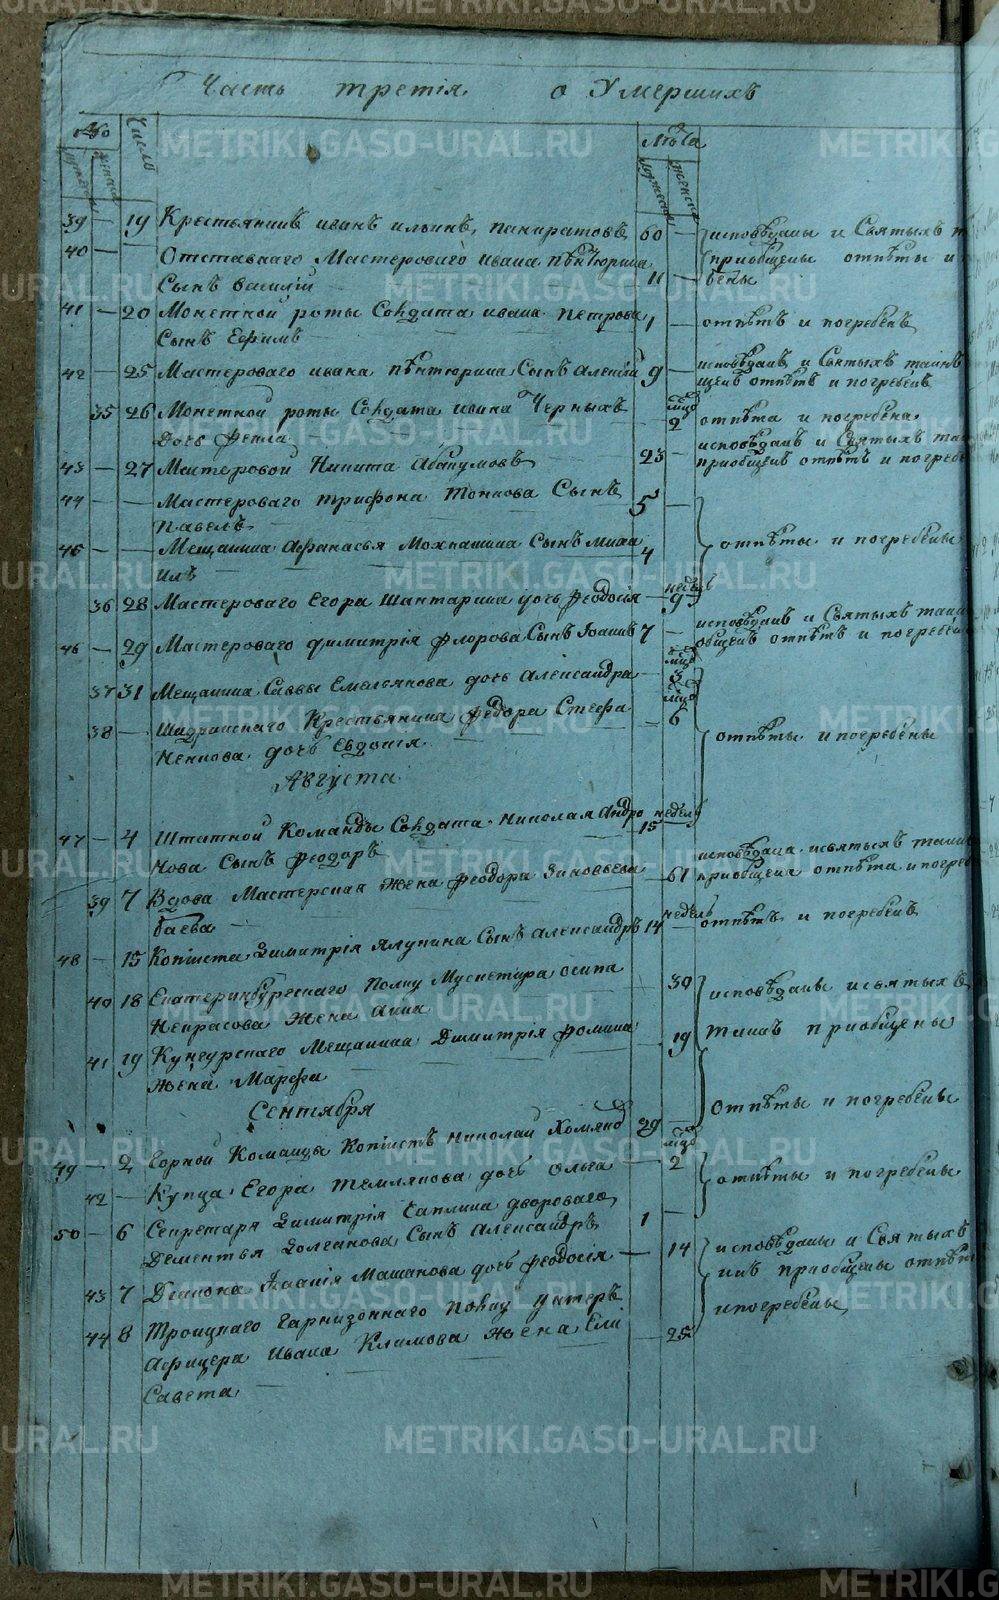 Часть третія о Умершихъ
№ Число Лѣта
мужеска женска мужеска женска
39 — 19 Крестьянинъ иванъ ильинъ панкратовъ 60 — исповѣданы и Святыхъ т
40 — — Отставнаго Мастероваго ивана пѣнтюрина приобщены отпѣты и
Сынъ василій 11 — бены
41 — 20 Монетной роты Солдата ивана петрова 1 — отпѣтъ и погребенъ
Сынъ Ефимъ
42 — 25 Мастероваго ивана пѣнтюрина Сынъ Алексій 9 — исповѣданъ и Святыхъ таинъ
щенъ отпѣтъ и погребенъ
35 26 Монетной роты Солдата ивана Черныхъ мцо 2 отпѣта и погребена
дочь фекла
43 — 27 Мастеровой Никита Абакумовъ 23 — исповѣданъ и Святыхъ таи
приобщенъ отпѣтъ и погребе
44 — — Мастероваго трифона Тонкова Сынъ 5 —
павелъ
45 — — Мещанина Афанасья Мохнашина Сынъ миха 4 отпѣты и погребены
илъ
36 28 Мастероваго Егора Шантарина дочь феодосія — недѣль 9
46 — 29 Мастероваго димитрія флорова Сынъ Іоаннъ 7 — исповѣданъ и Святыхъ таин
общенъ отпѣтъ и погребенъ
37 31 Мещанина Саввы Емельянова дочь Александра — мцо 3
38 — Шадринскаго Крестьянина федора Стефа — мцо 6
ненкова дочь Евдокія отпѣты и погребены
Августа
47 — 4 Штатной Команды Солдата николая Андро недель 15
нова Сынъ феодоръ
39 7 Вдова Мастерская жена феодора Зиновьева — 61 исповѣдана исвятыхъ таин
баева приобщена отпѣта и погреб
48 — 15 Копіиста Димитрія Ялунина Сынъ Александръ недель 14 — отпѣтъ и погребенъ
40 18 Екатеринбургскаго Полку Мускетира осипа 39
Некрасова жена Анна исповѣданы исвятыхъ
41 19 Кунгурскаго Мещанина Дмитрія фомина 19 Таинъ приобщены
жена Марфа
Сентября отпѣты и погребены
49 — 2 Горной Команды Копіистъ николай Хомяко 29 —
42 — Купца Егора темлякова дочь ольга — мцо 2 отпѣты и погребены
50 — 6 Секретаря Димитрія Саплина двороваго
Дементья Долганова Сынъ Александръ 1 —
43 7 Дьякона Іоанія Машанова дочь феодосія — 14 исповѣданы и Святыхъ
инъ приобщены отпѣты
44 8 Троицкаго гарнизоннаго полку унтеръ ипогребены
Афицера Ивана Климова жена Ели — 25
Савета
METRIKI.GASO-URAL.RU